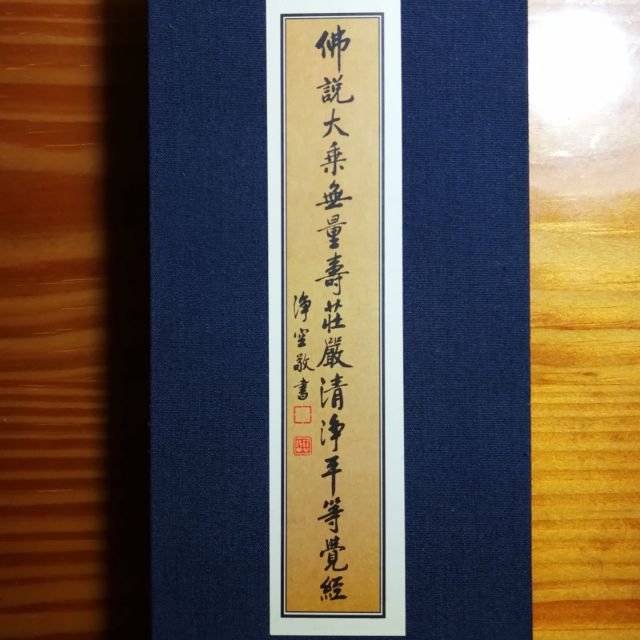 佛説大乘無量壽莊嚴清淨平等覺經
淨空敬書